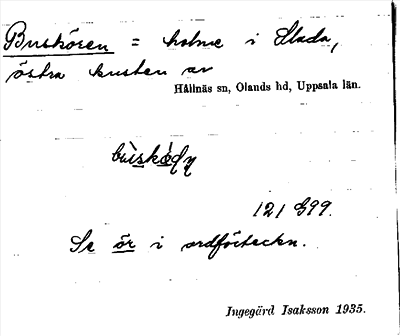 Buskören = holme i Slada,
östra kusten av
Hållnäs sn, Olands hd, Uppsala län.
121 G99.
Se ör i ordförteckn.
Ingegärd Isaksson 1935.